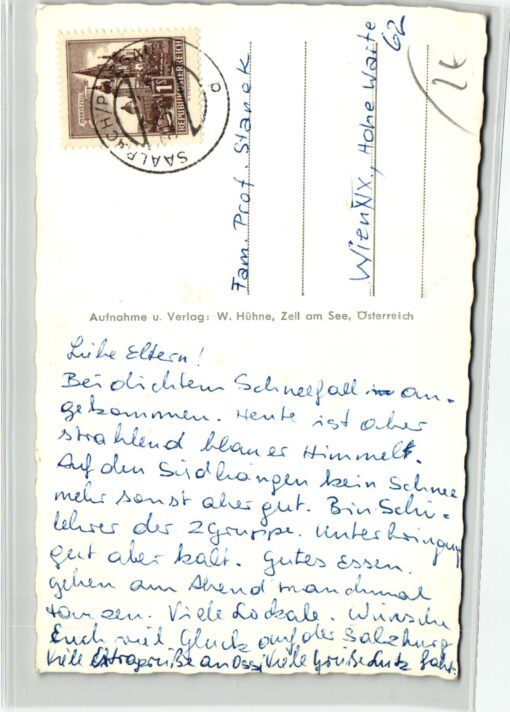 REPUBLIK ÖSTERREICH
1S
SAALBACH
Fam. Prof. Stanek
Wien XIX, Hohe Warte
62
Aufnahme u. Verlag: W. Hühne, Zell am See, Österreich
Liebe Eltern!
Bei dichtem Schneefall an-
gekommen. Heute ist aber
strahlend blauer Himmel.
Auf den Südhängen kein Schnee
mehr sonst aber gut. Bin Schi-
lehrer der 2 Gruppe. Unterbringung
gut aber kalt. Gutes Essen.
gehen am Abend manchmal
tanzen. Viele Lockale. Wünsche
Euch viel Glück auf der Salzburg
Viele Extragrüße an Ossi Viele Grüße Lutz